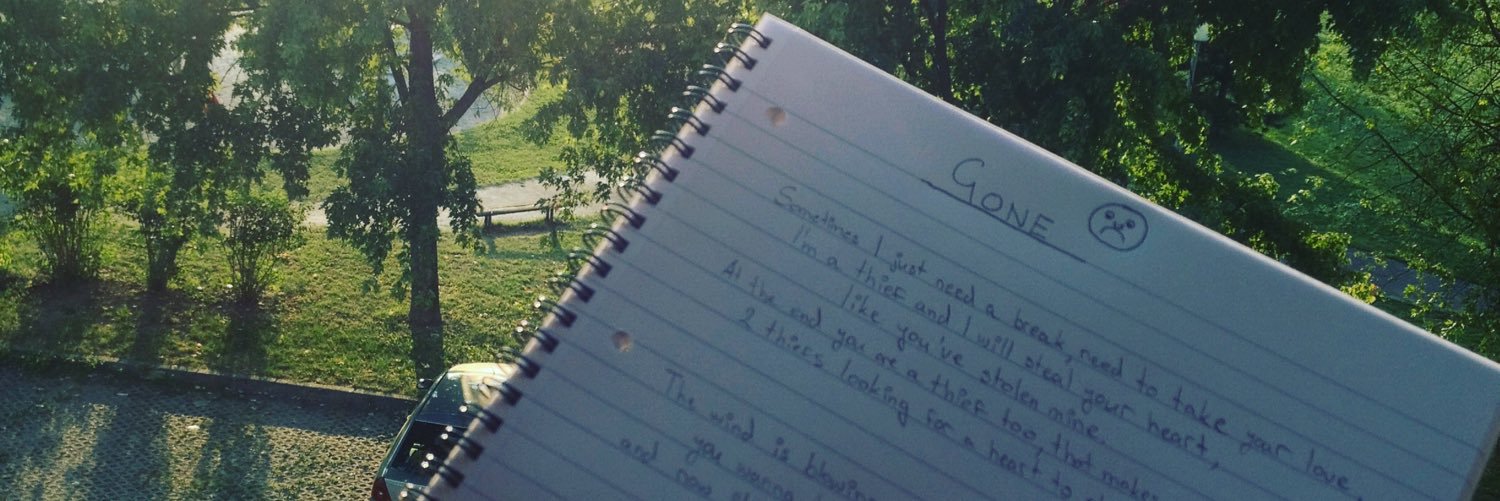 GONE
Sometimes I just need a break, need to take your love
I'm a thief and I will steal your heart,
like you've stolen mine.
At the end you are a thief too, that makes
2 thiefs looking for a heart to
The wind is blowing
you wanna
and now